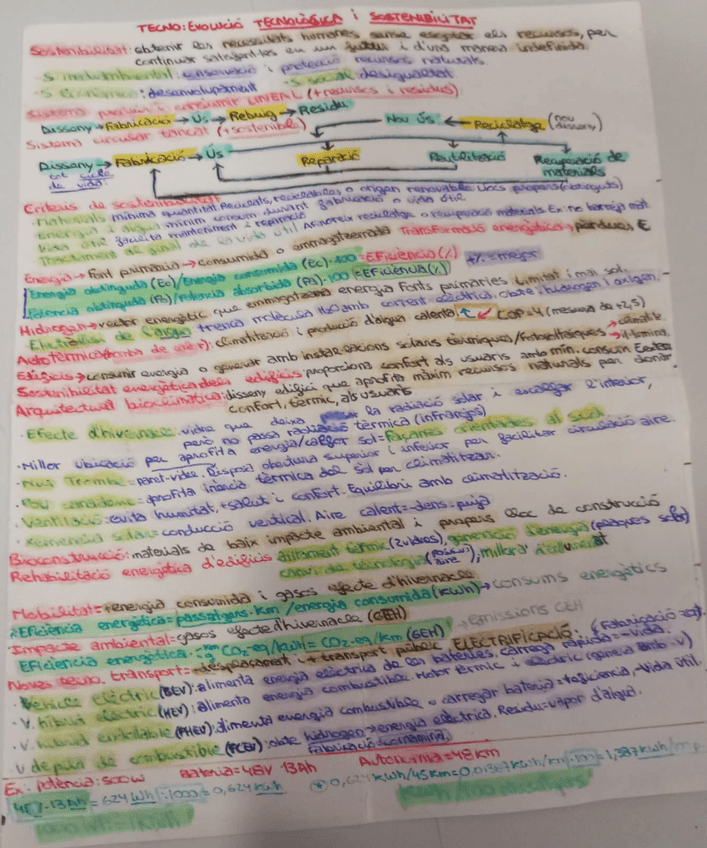 TECNO: EVOLUCIÓ TECNOLÒGICA i SOSTENIBILITAT
Sostenibilitat: obtenir les necessitats humanes sense esgotar els recursos, per
continuar satisfent-les en un futur i d'una manera indefinida.
- S. mediambiental: conservació i protecció recursos naturals.
- S. econòmica: desenvolupament - S. social: desigualtat
Sistema produir i consumir LINEAL (+ recursos i residus)
Disseny → Fabricació → Ús → Rebuig → Residu
Sistema circular tancat (+ sostenible)
Nou Ús ← Reciclatge (nou disseny)
Disseny → Fabricació → Ús
Reparació Reutilització Recuperació de materials
tot cicle de vida
Criteris de sostenibilitat
· Materials mínima quantitat Reciclats, reciclables o origen renovable Llocs propers
· Energia i aigua mínim consum durant fabricació o vida útil
· Vida útil facilita manteniment i reparació
· Tractament de final de la vida útil Afavoreix reciclatge o recuperació materials. Ex: no barreja mat
Energia → Font primària → consumida o emmagatzemada Transformació energètica → pèrdues E
Energia obtinguda (Eo)/Energia consumida (Ec)·100 = EFiciència (%)
Potència obtinguda (Po)/potència absorbida (Pa)·100 = EFiciència (%) +% = millor
Hidrogen → vector energètic que emmagatzema energia Fonts primàries Limitat i mai sol.
· Electròlisi de l'aigua trenca molècula H2O amb corrent elèctrica. Obté hidrogen i oxigen.
climatització i producció d'aigua calenta COP=4 (mesura de +2,5)
Edificis → consumir energia o generar amb instal·lacions solars tèrmiques/fotovoltaiques
Sostenibilitat energètica dels edificis proporciona confort als usuaris amb mín. consum
Arquitectura bioclimàtica: disseny edifici que aprofita màxim recursos naturals per donar
confort, tèrmic, als usuaris
· Efecte d'hivernacle: vidre que deixa passar la radiació solar i escalfar l'interior,
però no passa radiació tèrmica (infrarojos)
· Millor ubicació per aprofita energia/calor sol = façanes orientades al sud
· Mur Trombe = paret-vidre. Disposa obertura superior i inferior per facilitar circulació aire.
· Pou canadenc = aprofita inèrcia tèrmica del Sòl per climatitzar.
· Ventilació: evita humitat, + salut i confort. Equilibri amb climatització.
· Xemeneia solar: conducció vertical. Aire calent = -dens = puja
Bioconstrucció: materials de baix impacte ambiental i propers lloc de construcció
Rehabilitació energètica d'edificis aïllament tèrmic (2 vidres), generació d'energia (plaques solars)
canvi de tecnologia
Mobilitat = energia consumida i gasos efecte d'hivernacle
EFiciència energètica = passatgers·km/energia consumida (kWh) → consums energètics
Impacte ambiental = gasos efecte d'hivernacle (GEH) → Emissions GEH
EFiciència energètica CO2 eq/kWh = CO2 eq/km (GEH)
Noves tecno. transport = desplaçament i + transport públic ELECTRIFICACIÓ.
· Vehicle elèctric (BEV): alimenta energia elèctrica de les bateries. Càrrega ràpida = -vida.
· V. híbrid elèctric (HEV): alimenta energia combustible. Motor tèrmic i elèctric
· V. híbrid endollable (PHEV): alimenta energia combustible o carregar bateria = + eficiència, -vida útil.
· V de pila de combustible (FCEV): obté hidrogen → energia elèctrica. Residu = vapor d'aigua.
Ex: Potència: 500W Bateria = 48V 13Ah Autonomia = 48km
48V·13Ah = 624Wh :1000 = 0,624kWh 0,624kWh/45km = 0,01387kWh/km ·100 = 1,387kWh
1000Wh = 1kWh